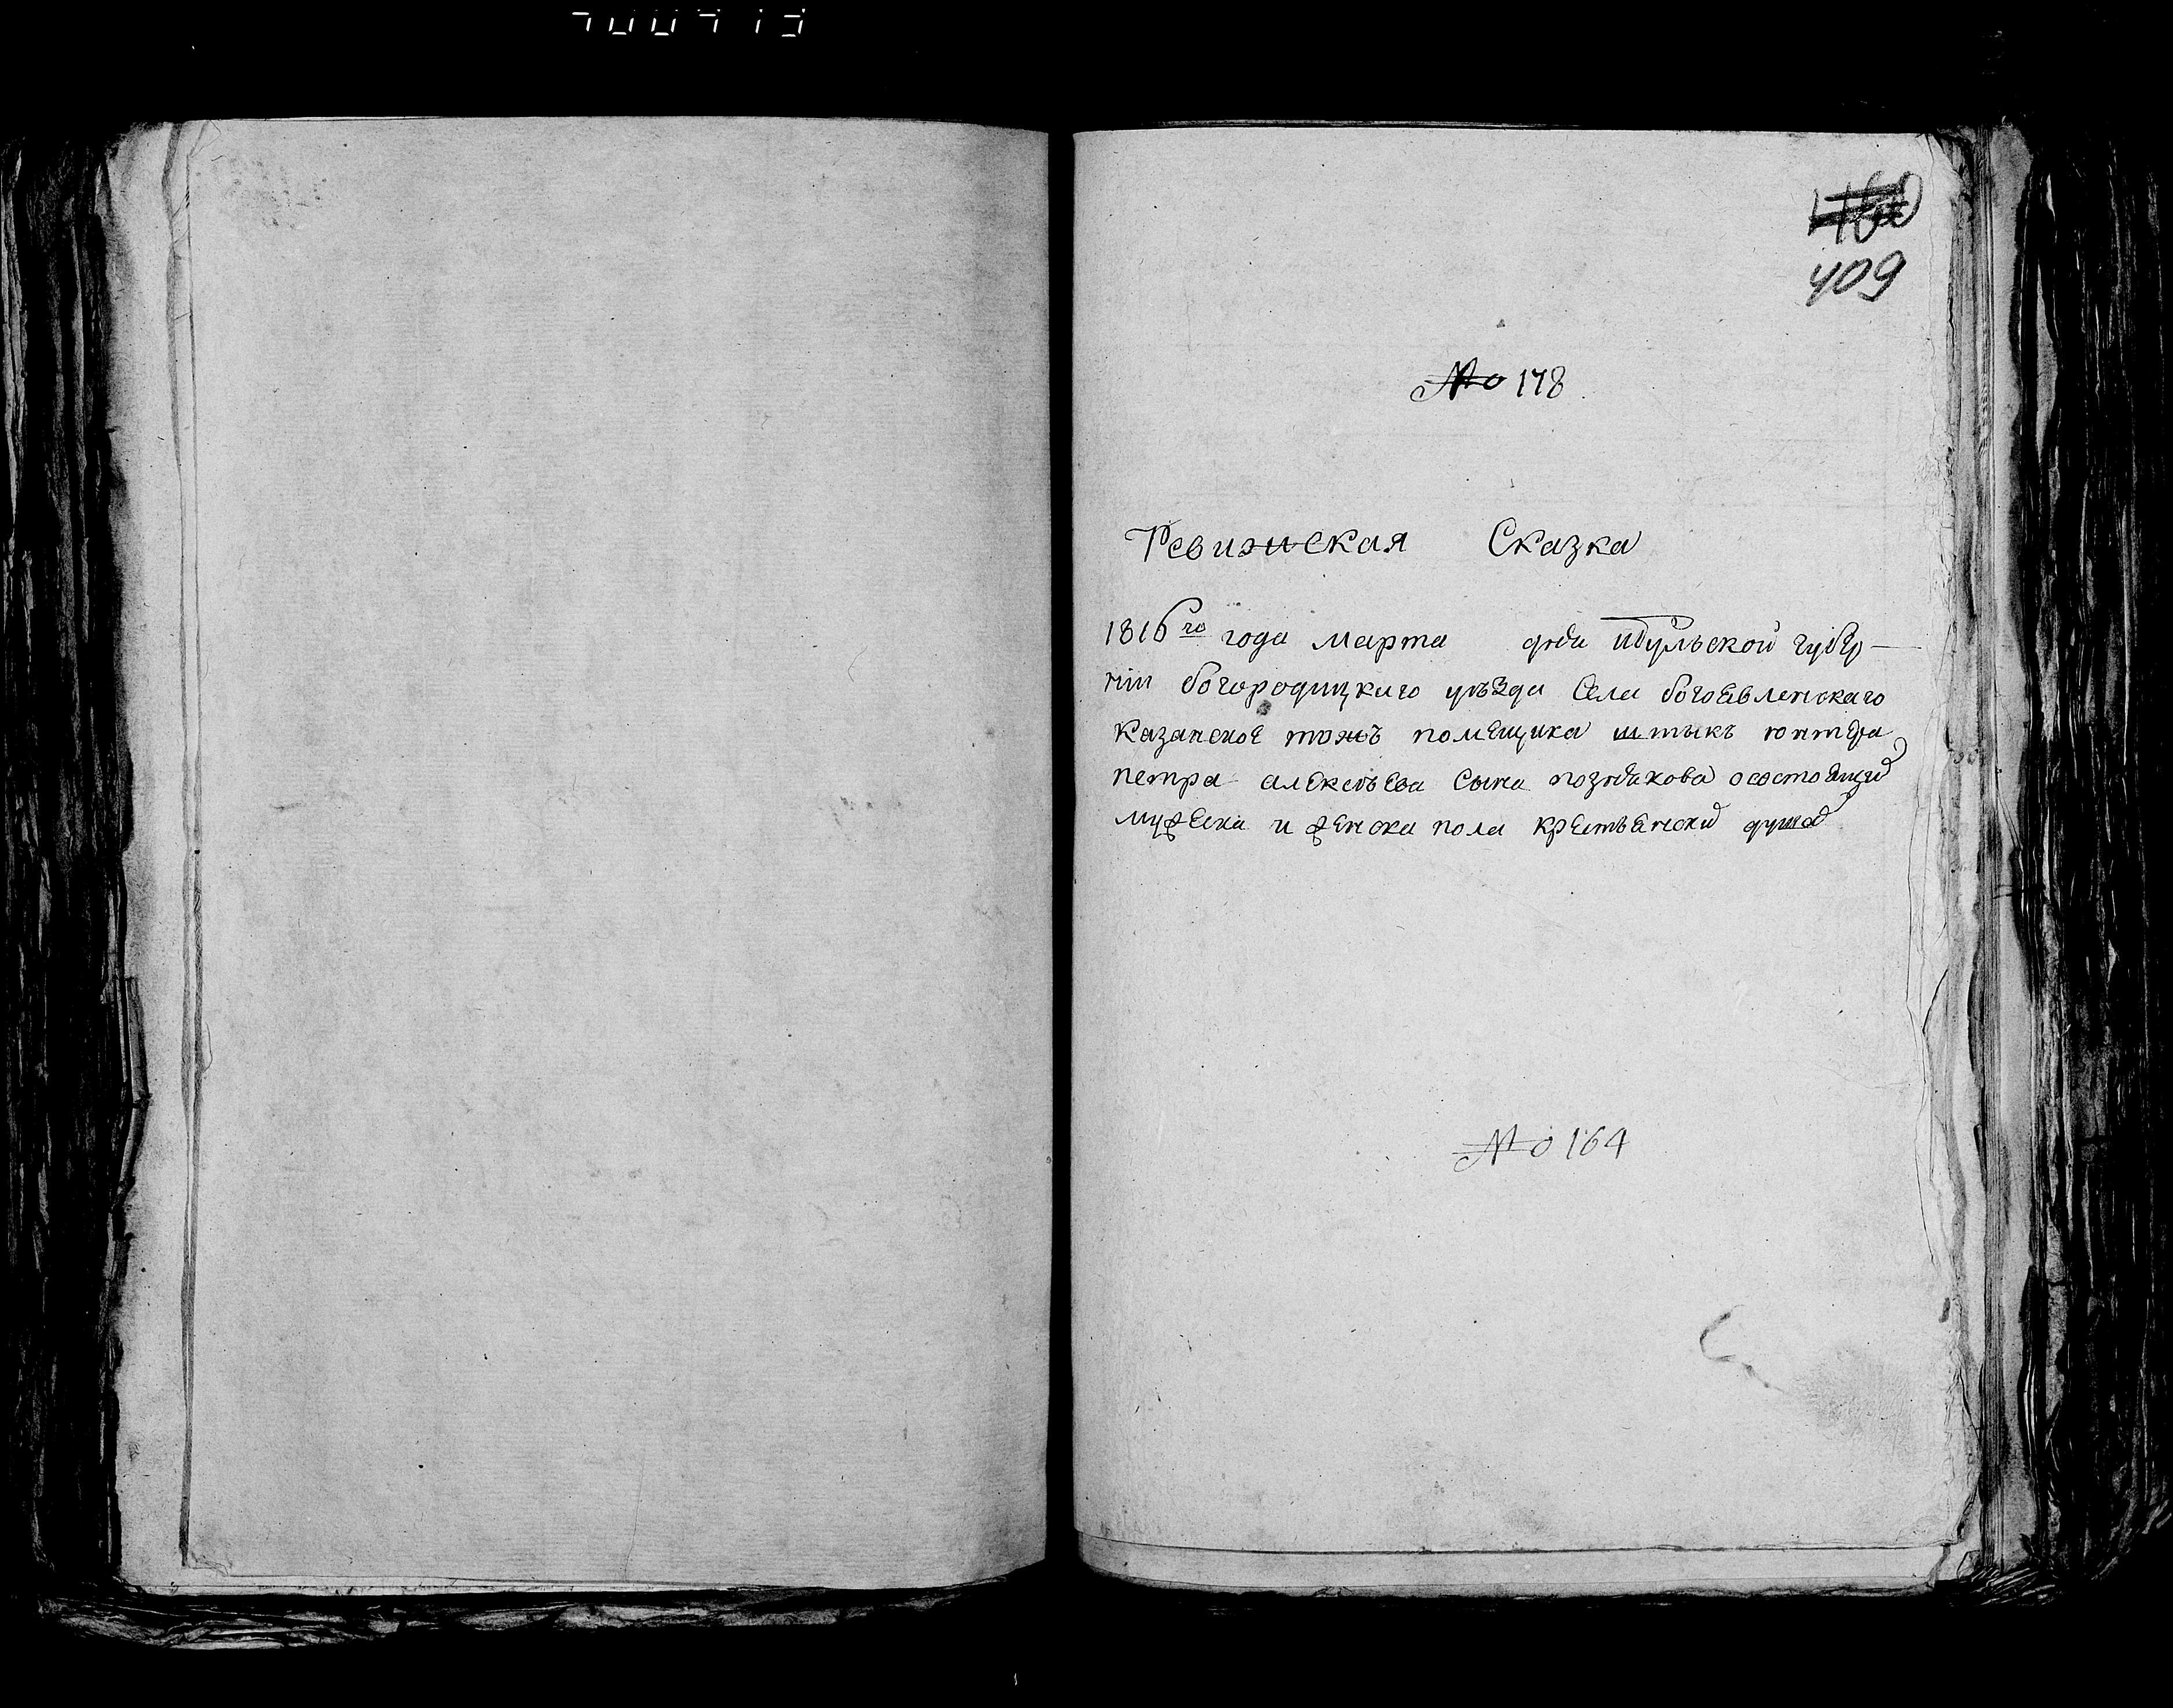 409
№ 178
Ревижская Сказка
1816го года марта дня Тульской губер
нии богородицкаго уѣзда села богоявленскаго
казанское тожъ помещика штыкъ юнкера
петра алексѣева сына познякова о состоящих
мужеска и женска пола крестьянских душах
№ 164